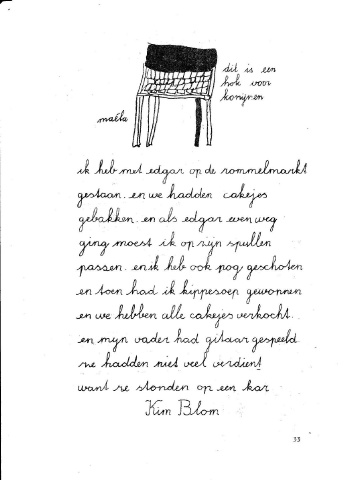 dit is een
hok voor
konijnen
maéla
ik heb met edgar op de rommelmarkt
gestaan. en we hadden cakejes
gebakken. en als edgar even weg
ging moest ik op zijn spullen
passen. en ik heb ook nog geschoten
en toen had ik kippesoep gewonnen
en we hebben alle cakejes verkocht.
en mijn vader had gitaar gespeeld
ze hadden niet veel verdient
want ze stonden op een kar
Kim Blom
33